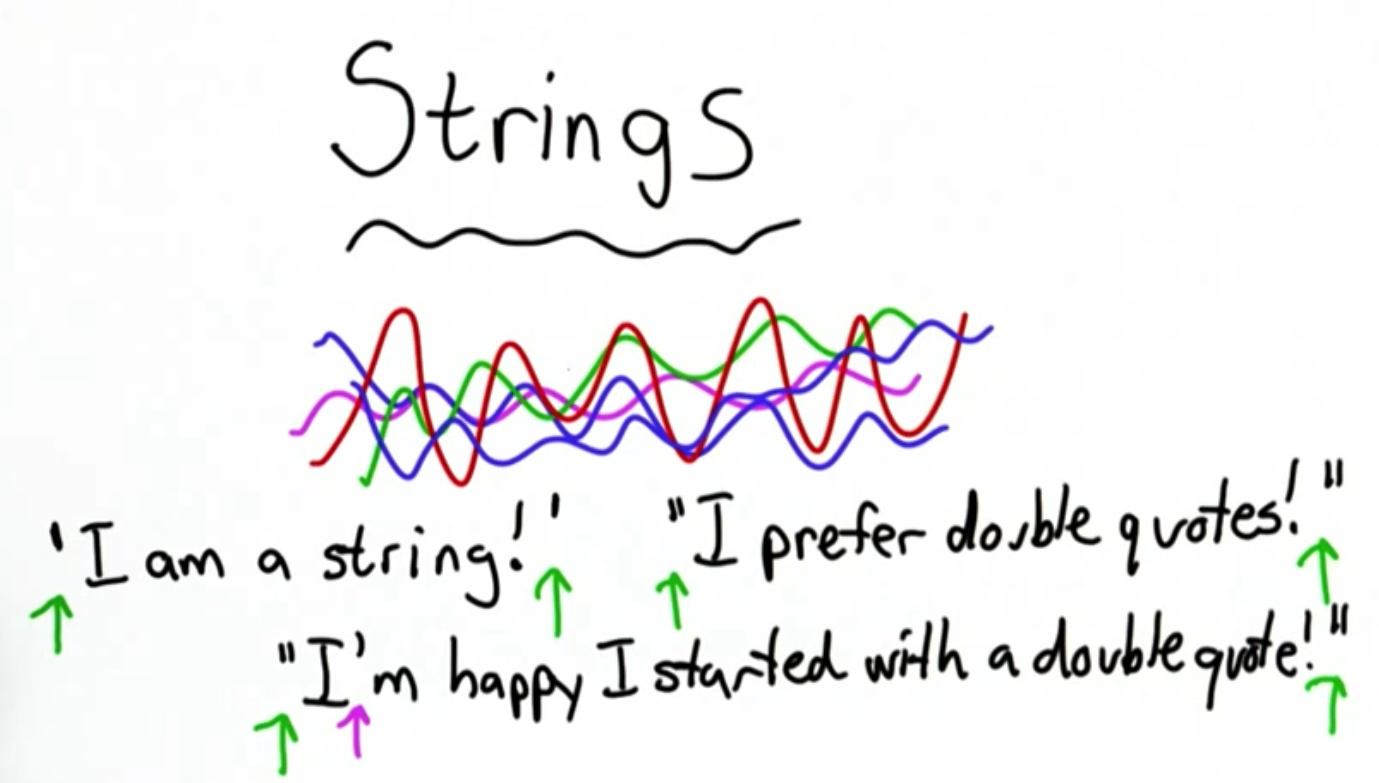 Strings
'I am a string!' "I prefer double quotes!"
"I'm happy I started with a double quote!"